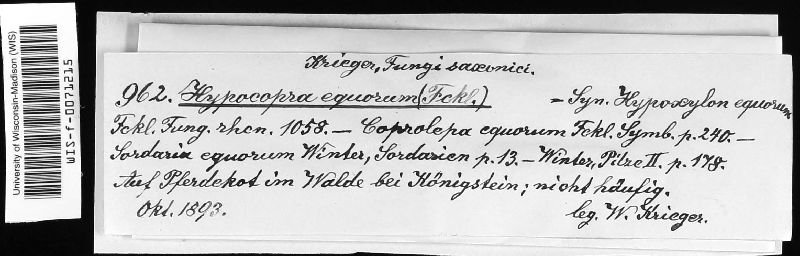 University of Wisconsin-Madison (WIS)
WIS-f-0071215
Krieger, Fungi saxonici.
962. Hypocopra equorum (Fckl.) — Syn. Hypoxylon equorum
Fckl. Fung. rhen. 1058. — Coprolepa equorum Fckl. Symb. p. 240. —
Sordaria equorum Winter, Sordarien p. 13. — Winter, Pilze II. p. 178.
Auf Pferdekot im Walde bei Königstein; nicht häufig.
Okt. 1893. leg. W. Krieger.